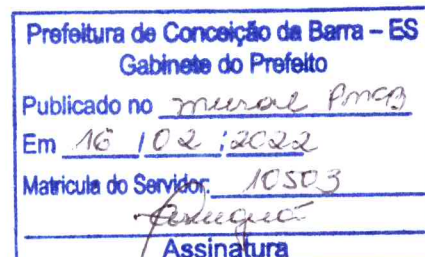 Prefeitura de Conceição da Barra – ES
Gabinete do Prefeito
Publicado no mural PMCB
Em 16 / 02 / 2022
Matricula do Servidor: 10503
Assinatura